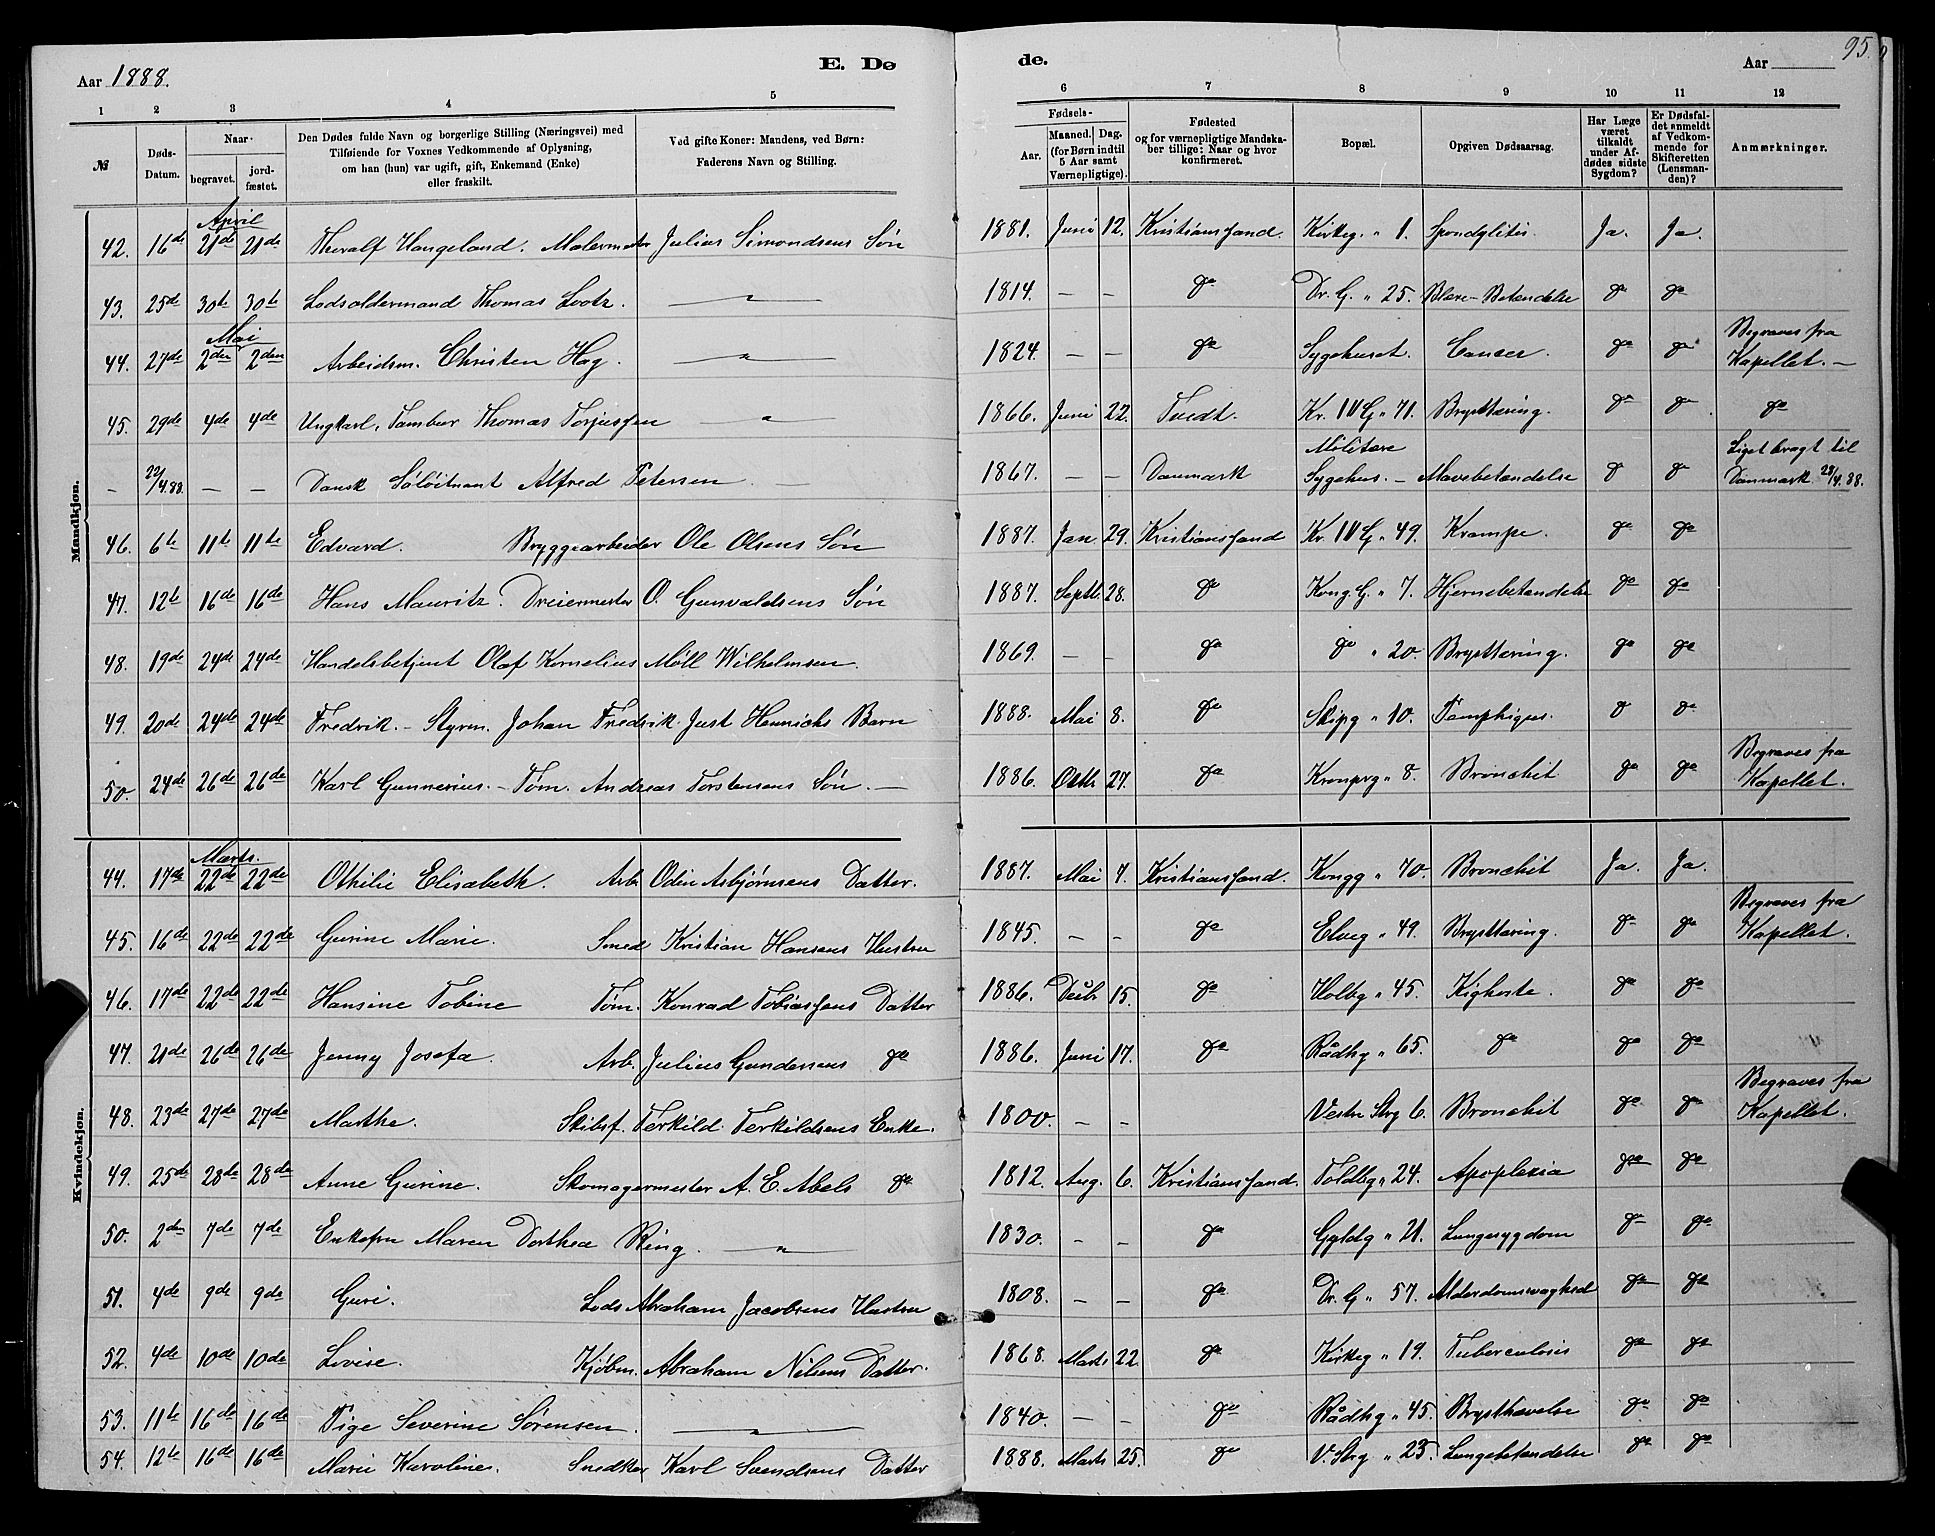 95.
Aar 1888. E. Dø de. Aar
1 2 3 4 5 6 7 8 9 10 11 12
№ Døds-Datum. Naar begravet. jordfæstet. Den Dødes fulde Navn og borgerlige Stilling (Næringsvei) med Tilføiende for Voxnes Vedkommende af Oplysning, om han (hun) var ugift, gift, Enkemand (Enke) eller fraskilt. Ved gifte Koner: Mandens, ved Børn: Faderens Navn og Stilling. Fødsels- Aar. Maaned. Dag. (for Børn indtil 5 Aar samt Værnepligtige). Fødested og for værnepligtige Mandskaber tillige: Naar og hvor konfirmeret. Bopæl. Opgiven Dødsaarsag. Har Læge været tilkaldt under Afdødes sidste Sygdom? Er Dødsfaldet anmeldt af Vedkommende for Skifteretten (Lensmanden)? Anmærkninger.
Mandkjøn.
April
42. 16de 21de 21de Thoralf Haugeland. Malermester Julius Simondsens Søn 1881. Juni 12. Kristianssand. Kirkeg. " 1. Spondylitis. Ja. Ja.
43. 25d 30te 30te Lodsoldermand Thomas Lootz. " 1814. — — do Dr. G. " 25. Blære-Betændelse do do
Mai
44. 27de 2den 2den Arbeidsm. Christen Hag. " 1824. — — do Sygehuset. Cancer. do do Begraves fra Kapellet. —
45. 29de 4de 4de Ungkarl, Tambur Thomas Torjussen " 1866. Juni 22. Tvedt. Kr. IV G " 71. Brysttæring. do do do
— 22/4.88 — — Dansk Søløitnant Alfred Petersen — 1867. — — Danmark Militære Sygehus. — Mavebetændelse do do Liget bragt til Danmark 28/4.88.
46. 6te 11te 11te Edvard. Bryggearbeider Ole Olsens Søn 1887. Jan. 29. Kristianssand Kr. IV G " 49. Krampe. do do
47. 12te 16de 16de Hans Mauritz. Dreiermester O. Gunvaldsens Søn 1887. Septb 28. do Kong. G. " 7. Hjernebetændelse do do
48. 19de 24de 24de Handelsbetjent Olaf Kornelius Møll Wilhelmsen. 1869. — — do do " 20. Brysttæring. do do
49. 20de 24de 24de Fredrik. — Styrm. Johan Fredrik Just Henrichs Barn 1888. Mai 8. do Skipg " 10. Pemphigus. do do
50. 24de 26de 26de Karl Gunnerius. — Tøm. Andreas Torstensens Søn. — 1886. Octbr 27. do Kronprg " 8. Bronchit do do Begraves fra Kapellet.
Kvindekjøn.
Marts.
44. 17de 22de 22de Othilie Elisabeth. Arb. Odin Asbjørnsens Datter. 1887. Mai 7. Kristianssand. Kongg " 70. Bronchit Ja. Ja.
45. 16de 22de 22de Gurine Marie. Smed Kristian Hansens Hustru 1845. — — do Elveg " 49. Brysttæring. do do Begraves fra Kapellet.
46. 17de 22de 22de Hansine Tobine Tøm. Konrad Tobiassens Datter 1886. Decbr 15. do Holbg " 45. Kighoste. do do
47. 21de 26de 26de Jenny Josefa. Arb. Julius Gundersens do 1886. Juni 17. do Rådhg " 65. do do do
48. 23de 27de 27de Marthe. Skibsf. Terkild Terkildsens Enke. 1800. — — Vestr Strg 6. Bronchit do do Begraves fra Kapellet.
49. 25de 28de 28de Anne Gurine. Skomagermester A. E. Abels do 1812. Aug. 6. Kristianssand. Toldbg " 24. Apoplexia do do
50. 2den 7de 7de Enkefru Maren Dorthea Ring. " 1830. — — do Gyldg " 21. Lungesygdom do do
51. 4de 9de 9de Guri. Lods Abraham Jacobsens Hustru 1808. — — do Dr. G " 57. Alderdomssvaghed do do
52. 4de 10de 10de Lovise. Kjøbm. Abraham Nilsens Datter. 1868. Marts 22. do Kirkeg " 19. Tuberculosis do do
53. 11te 16de 16de Pige Severine Sørensen. " 1840. — — do Rådhg " 45. Brysthævelse do do
54. 12te 16de 16de Marie Karoline. Snedker Karl Svendsens Datter 1888. Marts 25. do V. Strg " 23. Lungebetændelse do do